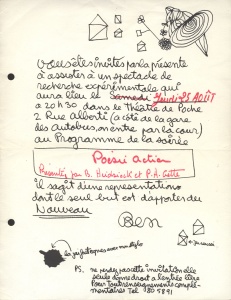 Vous êtes invités par la présente
à assister à un spectacle de
recherche expérimentale qui
aura lieu le Samedi Jeudi 25 AOÛT
a 20h30 dans le Théâtre de Poche
2 Rue Alberti (a côté de la gare
des autobus, on entre par la cour)
au Programme de la soirée
Poesie action
Présentés par B. et P.A. Gette
il sagit d'une representation
dont le seul but est d'apporter du
Nouveau
Ben
PS, ne perdez pas cette invitation elle
seule donne droit a l'entrée libre
Pour tout renseignements complé-
mentaires Tel 80 5891